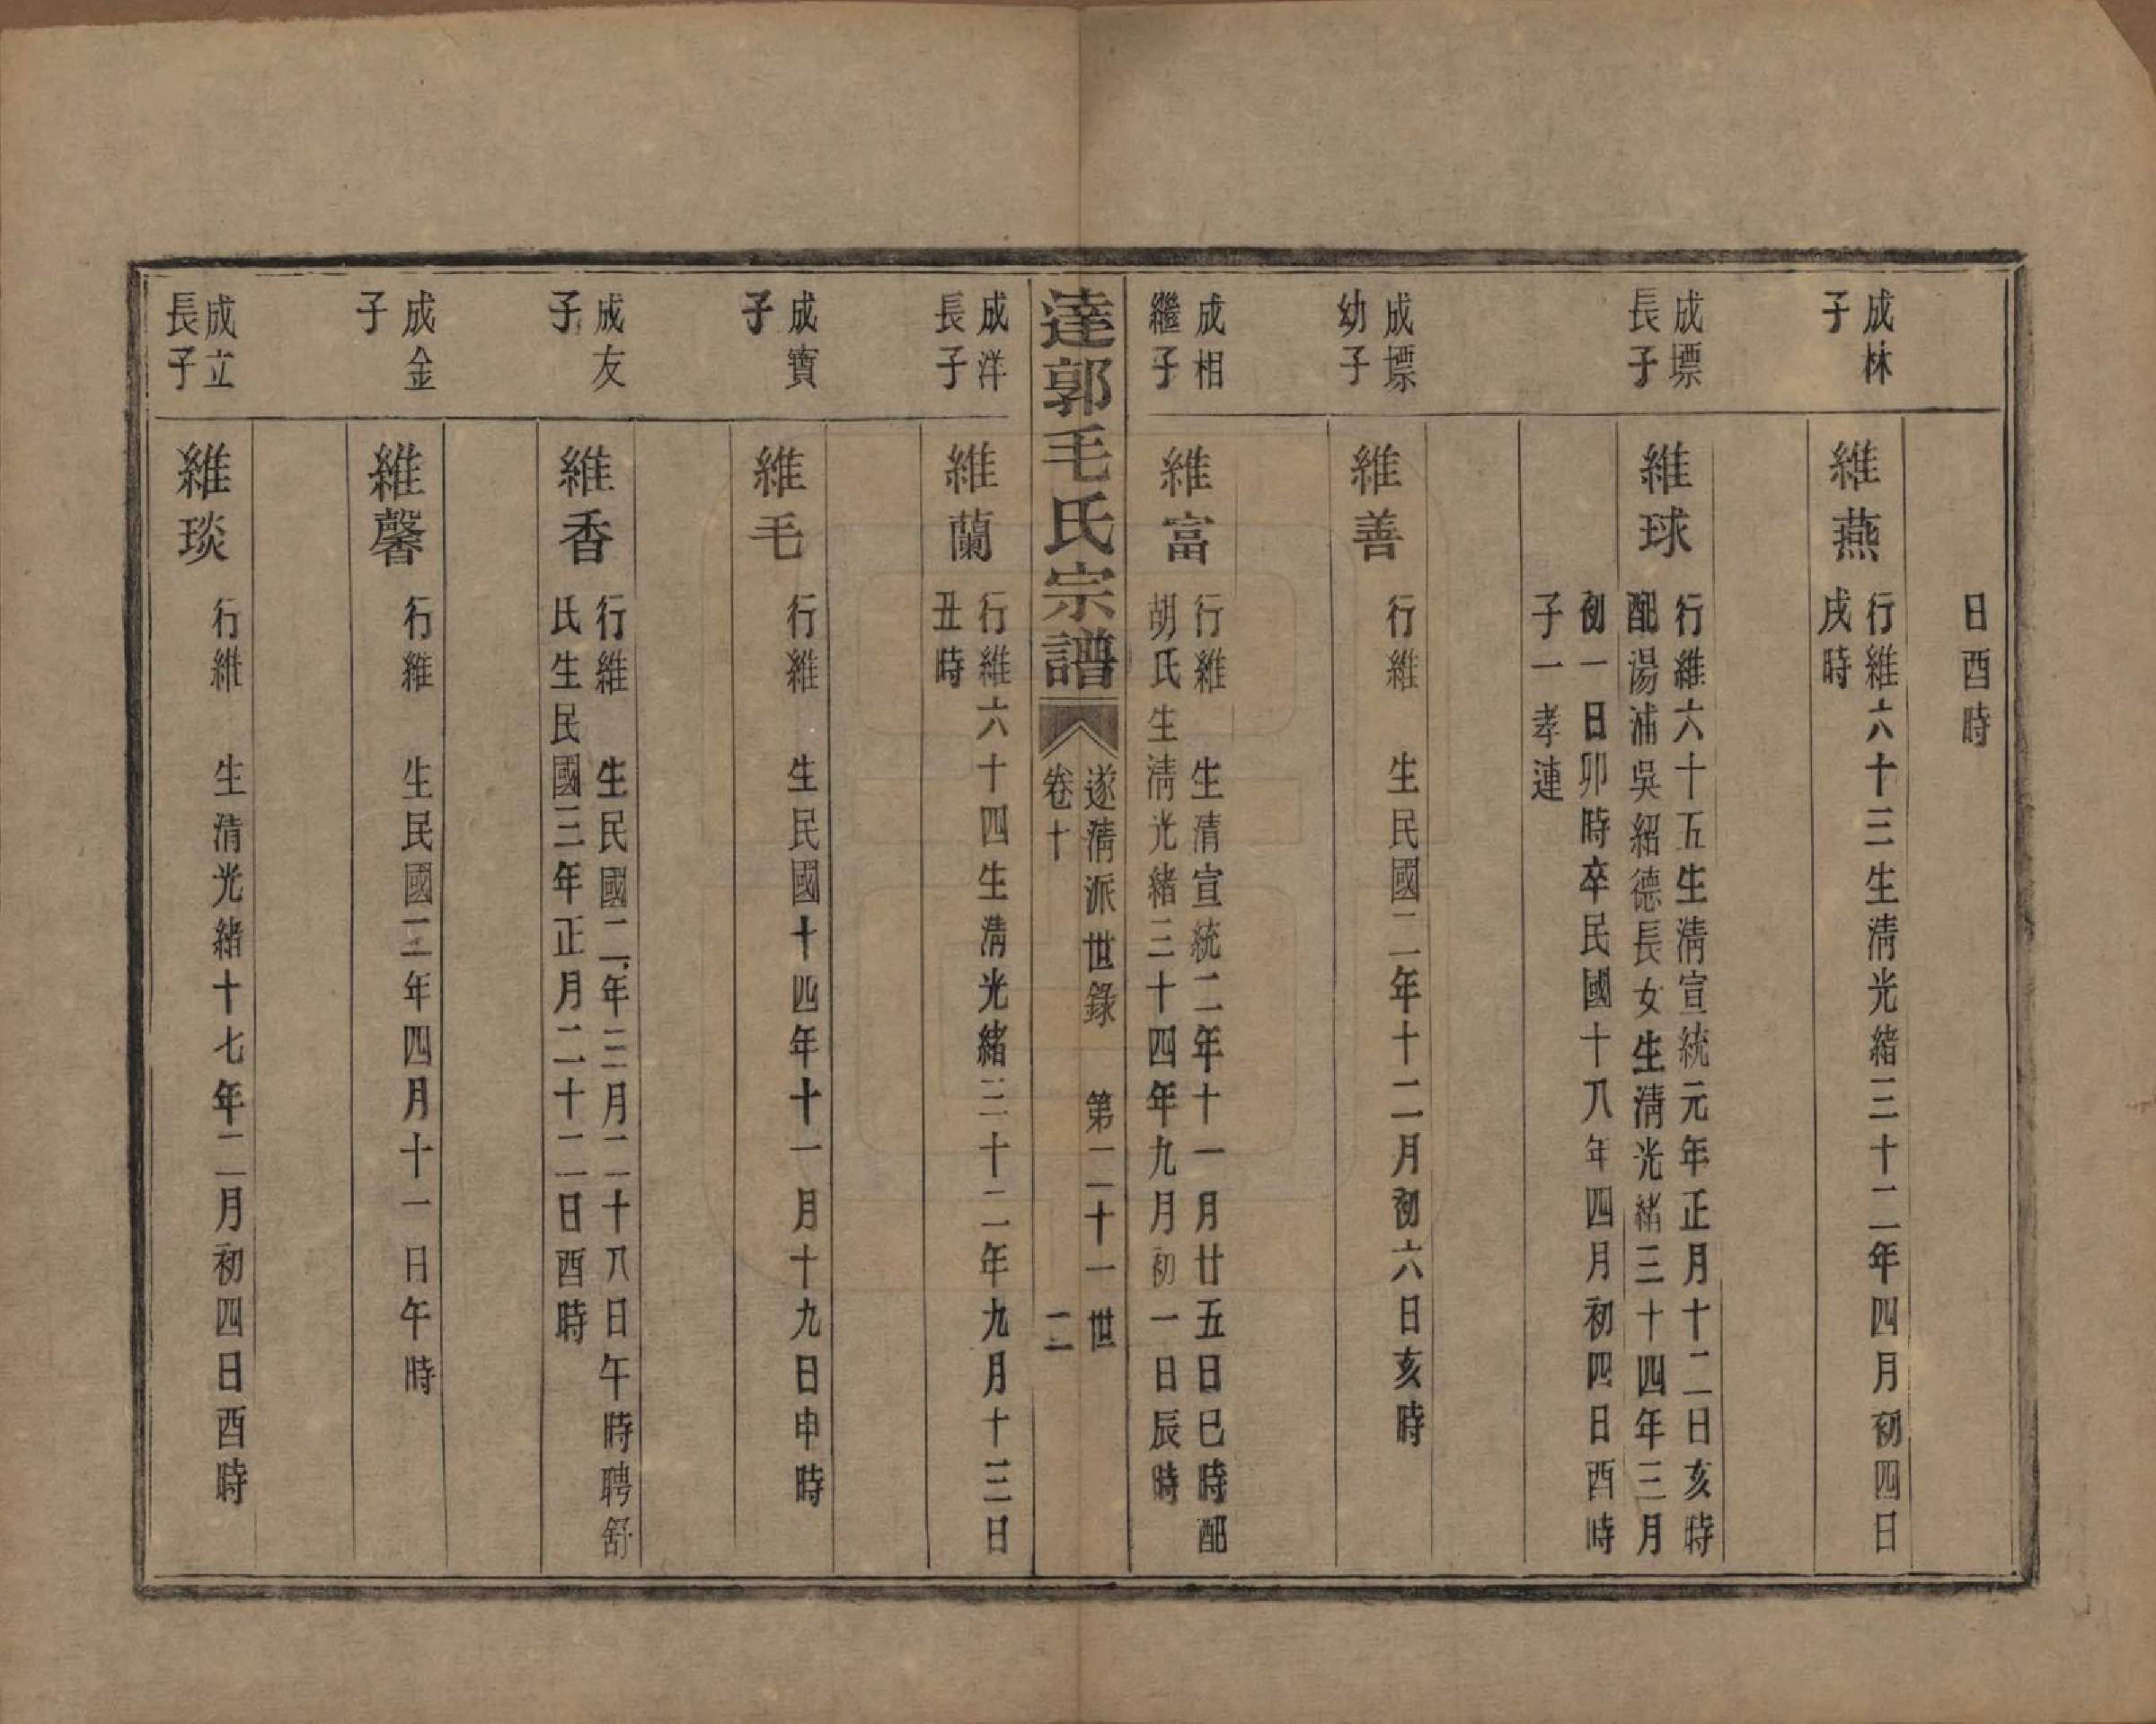 日酉時
成林
子
維燕
行維六十三生淸光緒三十二年四月初四日
戌時
成墂
長子
維球
行維六十五生淸宣統元年正月十二日亥時
配湯浦吳紹德長女生淸光緒三十四年三月
初一日卯時卒民國十八年四月初四日酉時
子一孝連
成墂
幼子
維善
行維　生民國二年十二月初六日亥時
成相
繼子
維富
行維　生清宣統二年十一月廿五日巳時配
胡氏生淸光緒三十四年九月初一日辰時
達郭毛氏宗譜
遂淸派世錄　第二十一世
卷十　二
成洋
長子
維蘭
行維六十四生淸光緒三十二年九月十三日
丑時
成寶
子
維毛
行維　生民國十四年十一月十九日申時
成友
子
維香
行維　生民國二年三月二十八日午時聘舒
氏生民國三年正月二十二日酉時
成金
子
維馨
行維　生民國三年四月十一日午時
成立
長子
維琰
行維　生清光緒十七年二月初四日酉時